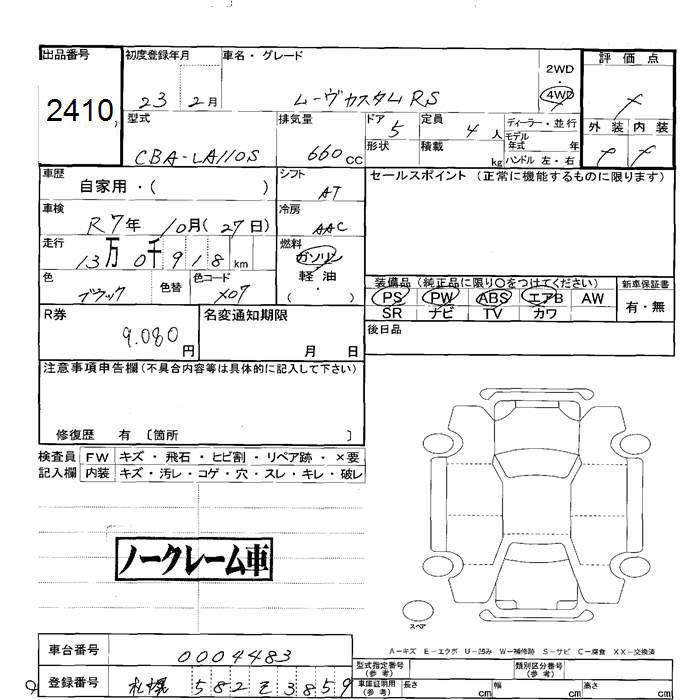 出品番号 初度登録年月 車名・グレード 評価点
2410 23 2月 ムーヴカスタムRS 2WD・4WD
型式 排気量 ドア 5 定員 4人 ディーラー・並行 外装 内装
CBA-LA110S 660cc 形状 積載 kg モデル年式 年
ハンドル 左・右
車歴 自家用・( ) シフト AT セールスポイント (正常に機能するものに限ります)
車検 R7年 10月(27日) 冷房 AAC
走行 13万0千918km 燃料 ガソリン・軽油 ( )
色 ブラック 色替 色コード X07
装備品 (純正品に限り○をつけてください) 新車保証書
PS PW ABS エアB AW 有・無
SR ナビ TV カワ
R券 9.080円 名変通知期限 月 日 後日品
注意事項申告欄(不具合内容等は具体的に記入して下さい)
修復歴 有 〔箇所 〕
検査員 FW キズ・飛石・ヒビ割・リペア跡・×要
記入欄 内装 キズ・汚レ・コゲ・穴・スレ・キレ・破レ
ノークレーム車
スペア
A-キズ E-エクボ U-凹み W-補修跡 S-サビ C-腐食 XX-交換済
車台番号 0004483 型式指定番号(参考) 類別区分番号(参考)
登録番号 札幌 582 そ 3859 車庫証明用(参考) 長さ cm 幅 cm 高さ cm